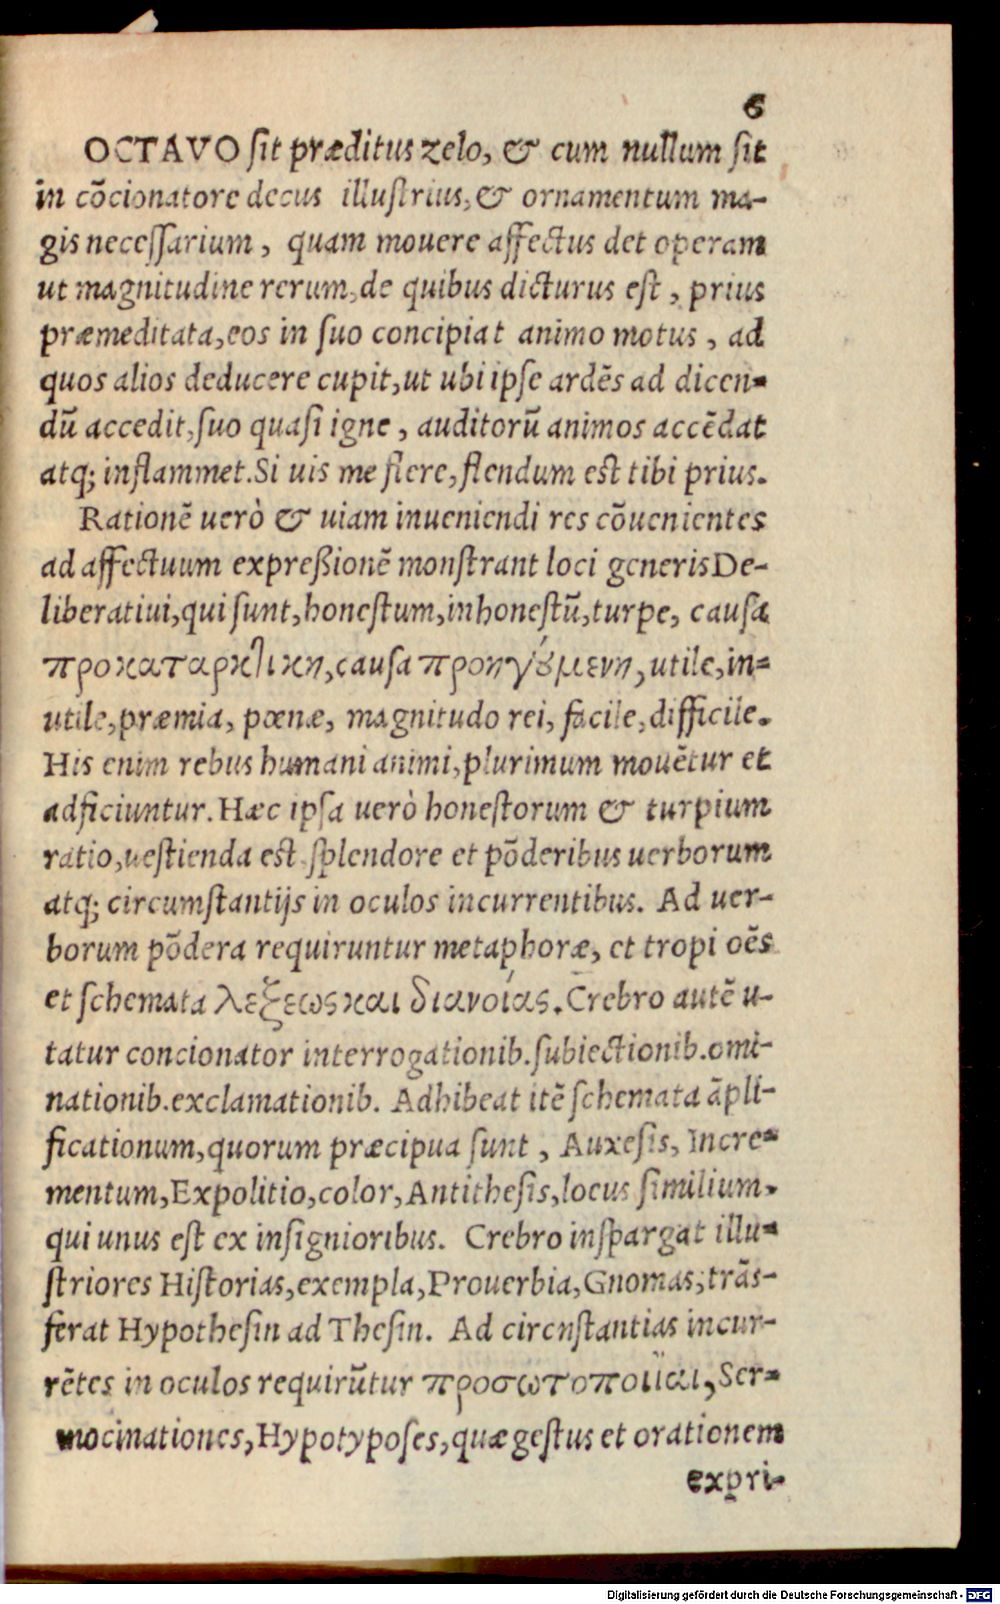 6
OCTAVO sit præditus zelo, & cum nullum sit
in cõcionatore decus illustrius, & ornamentum ma-
gis necessarium, quam mouere affectus det operam
ut magnitudine rerum, de quibus dicturus est, prius
præmeditata, eos in suo concipiat animo motus, ad
quos alios deducere cupit, ut ubi ipse ardẽs ad dicen-
dũ accedit, suo quasi igne, auditorũ animos accẽdat
atq; inflammet. Si uis me flere, flendum est tibi prius.
Rationẽ uerò & uiam inueniendi res cõuenientes
ad affectuum expreßionẽ monstrant loci generis De-
liberatiui, qui sunt, honestum, inhonestũ, turpe, causa
προκαταρκτικη, causa προηγούμενη, utile, in-
utile, præmia, pœnæ, magnitudo rei, facile, difficile.
His enim rebus humani animi, plurimum mouẽtur et
adficiuntur. Hæc ipsa uerò honestorum & turpium
ratio, uestienda est splendore et põderibus uerborum
atq; circumstantijs in oculos incurrentibus. Ad uer-
borum põdera requiruntur metaphoræ, et tropi oẽs
et schemata λεξεως και διανοίας. Crebro autẽ u-
tatur concionator interrogationib. subiectionib. omi-
nationib. exclamationib. Adhibeat itẽ schemata ãpli-
ficationum, quorum præcipua sunt, Auxesis, Incre-
mentum, Expolitio, color, Antithesis, locus similium.
qui unus est ex insignioribus. Crebro inspargat illu-
striores Historias, exempla, Prouerbia, Gnomas, trãs-
ferat Hypothesin ad Thesin. Ad circnstantias incur-
rẽtes in oculos requirũtur προσωτοποιϊαι, Ser-
mocinationes, Hypotyposes, quæ gestus et orationem
expri-
Digitalisierung gefördert durch die Deutsche Forschungsgemeinschaft - DFG